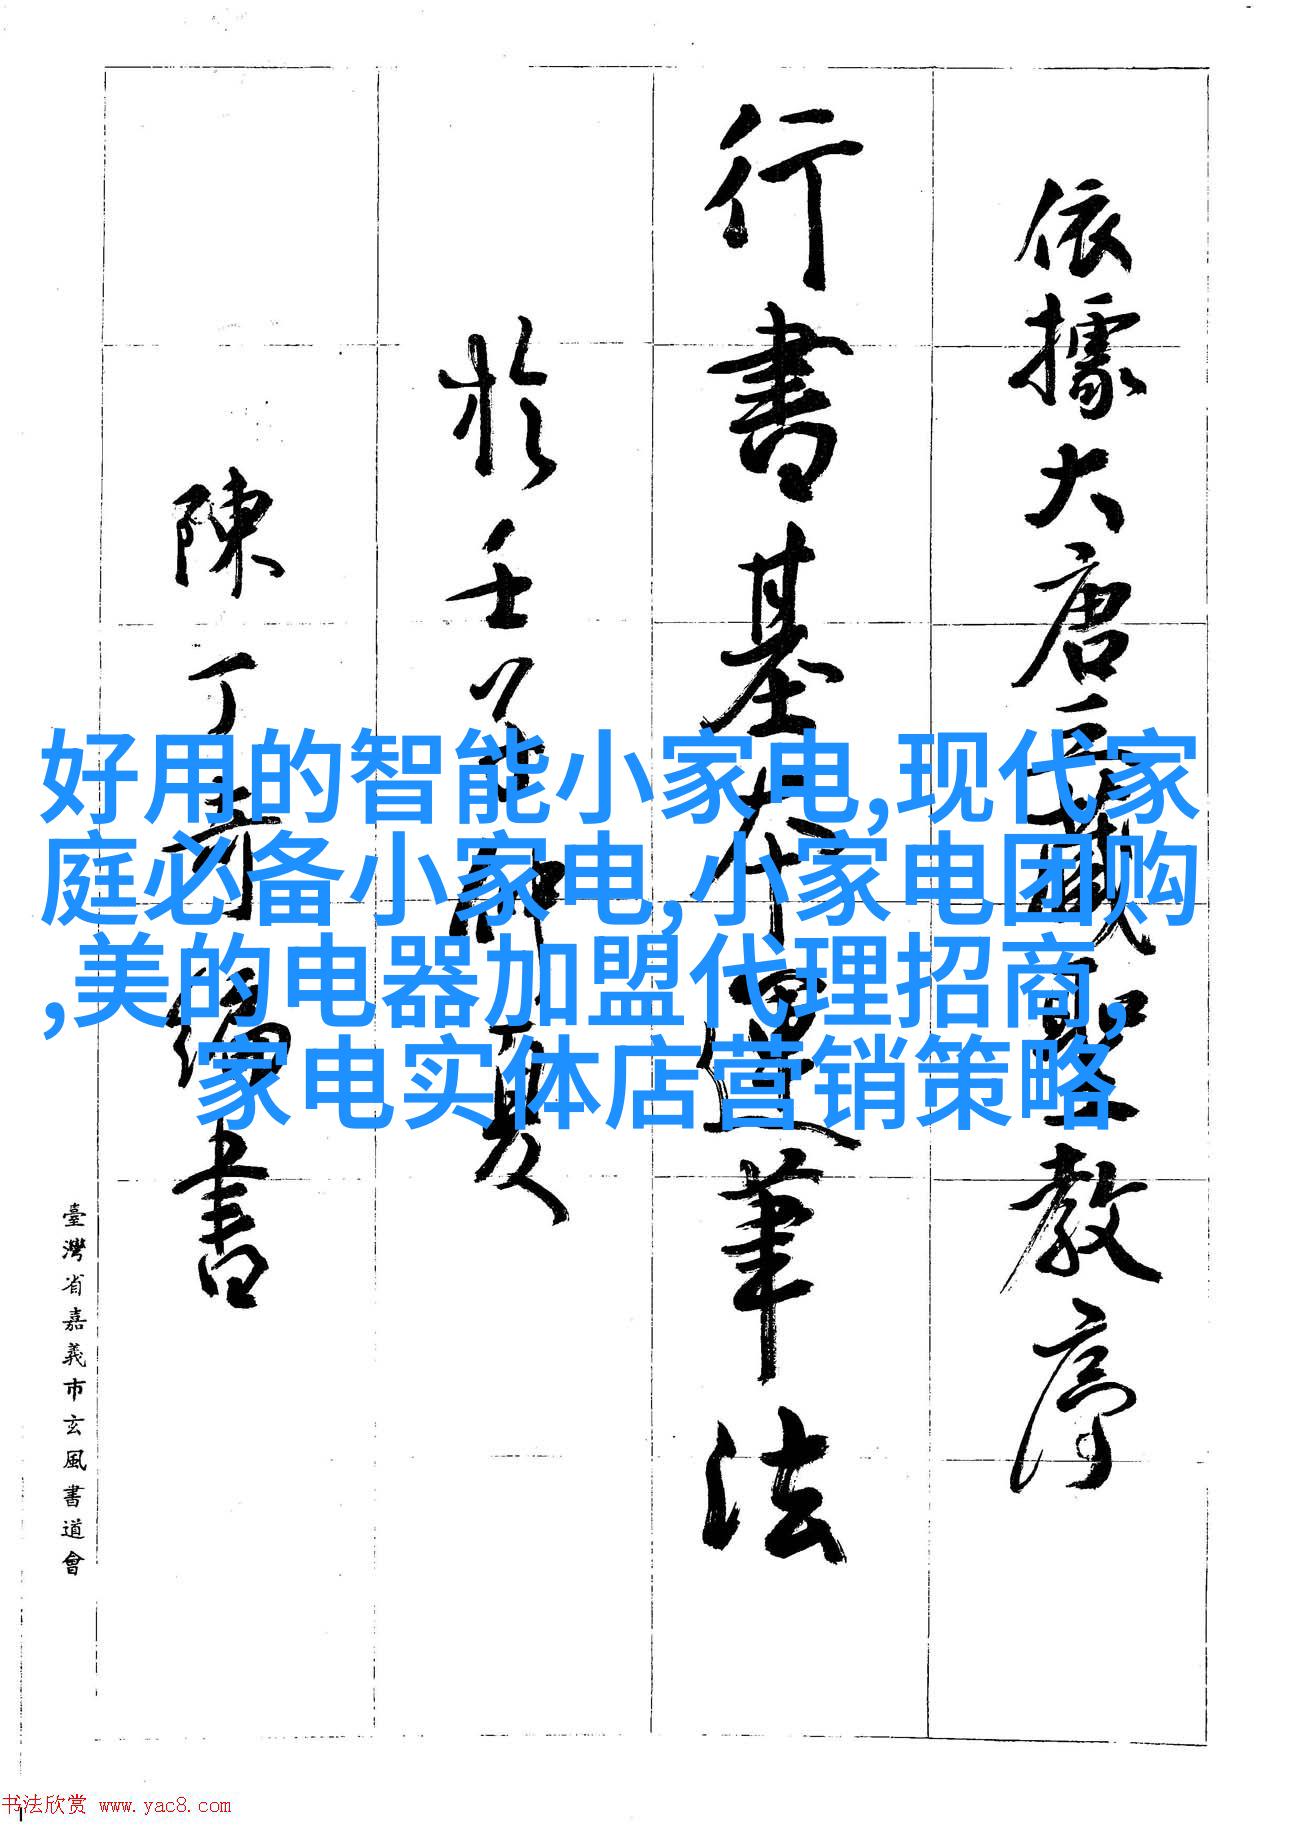 依據大唐三藏聖教序
行書基本運筆法
於壬
夏
陳丁奇編書
臺灣省嘉義市玄風書道會
好用的智能小家电,现代家
庭必备小家电,小家电团购
,美的电器加盟代理招商,
家电实体店营销策略
书法欣赏 www.yac8.com
1